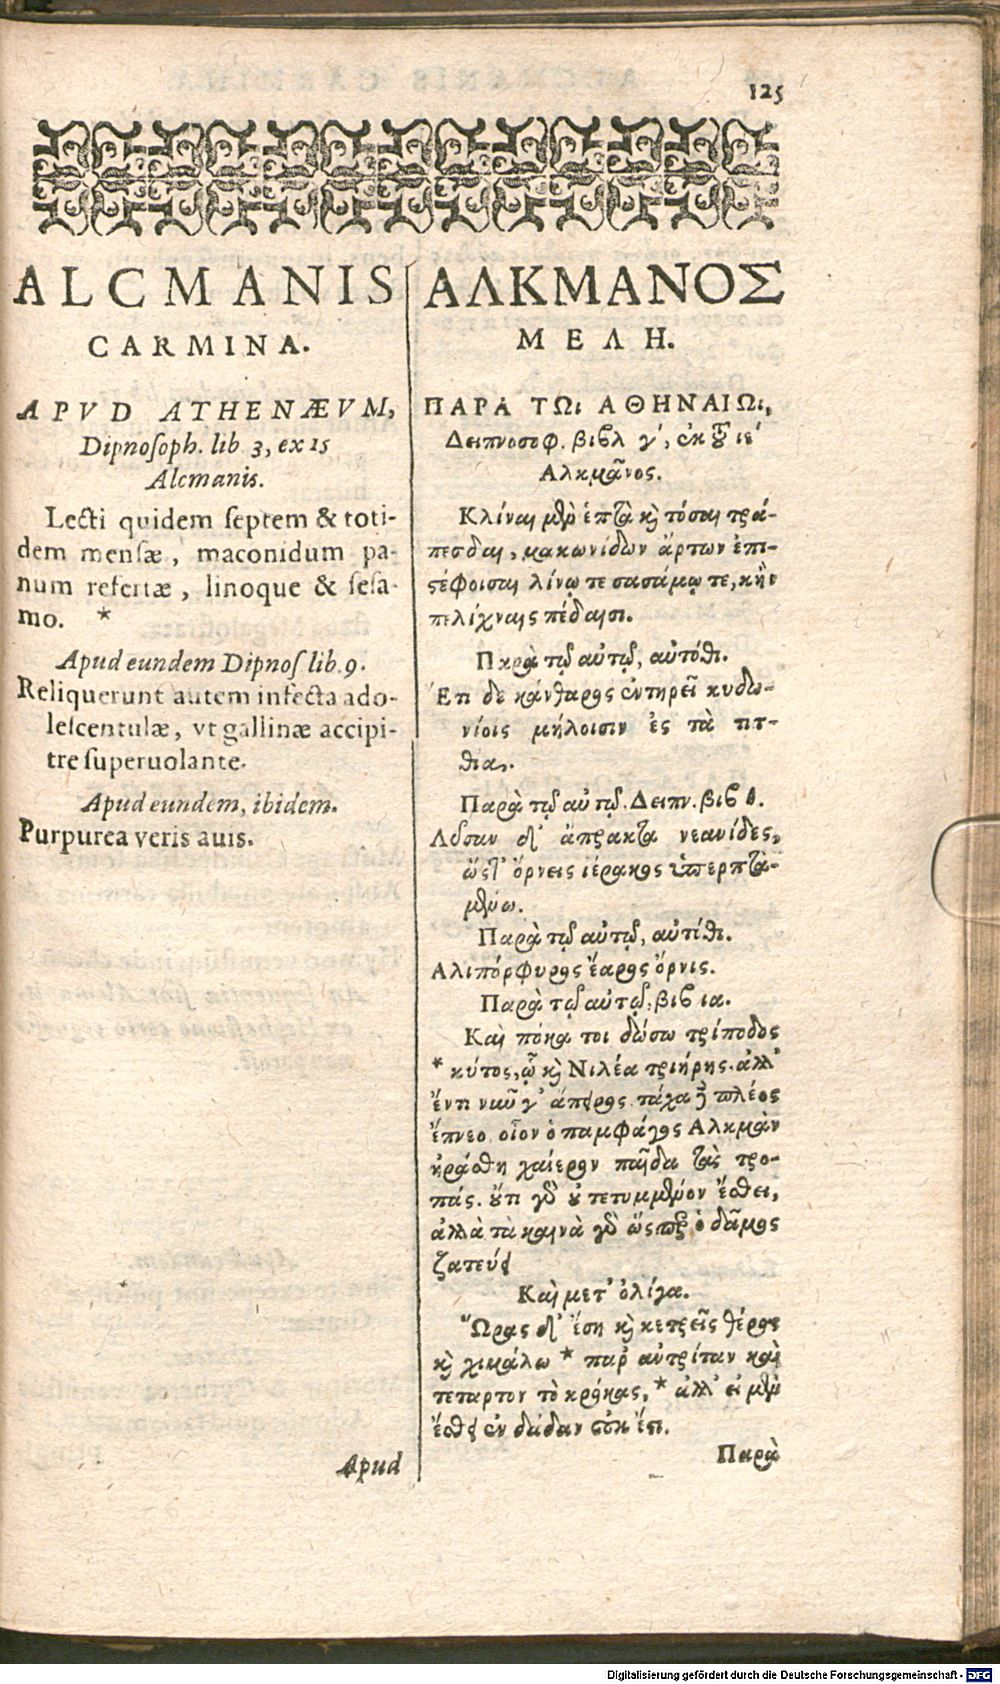 125
ALCMANIS
CARMINA.
APVD ATHENÆVM,
Dipnosoph. lib 3, ex 15
Alcmanis.
Lecti quidem septem & toti-
dem mensæ, maconidum pa-
num refertæ, linoque & sesa-
mo. *
Apud eundem Dipnos lib. 9.
Reliquerunt autem infecta ado-
lescentulæ, vt gallinæ accipi-
tre superuolante.
Apud eundem, ibidem.
Purpurea veris auis.
Apud
ΑΛΚΜΑΝΟΣ
ΜΕΛΗ.
ΠΑΡΑ ΤΩι ΑΘΗΝΑΙΩι,
Δειπνοσοφ. βιβλ γ', ἐκ τοῦ ιε'
Αλκμᾶνος.
Κλίναι μὲν ἑπτὰ καὶ τόσαι τρά-
πεσδαι, μακωνίδων ἄρτων ἐπι-
στέφοισαι λίνῳ τε σασάμῳ τε, κἠν
πελίχναις πέδαισι.
Παρὰ τῷ αὐτῷ, αὐτόθι.
Ἐπι δε κάνθαρος ἐντηρεῖ κυδω-
νίοις μήλοισιν ἐς τὰ πτ-
θια.
Παρὰ τῷ αὐτῷ. Δειπν. βιβ θ.
Λῦσαν δ' ἄπρακτα νεανίδες,
ὥστ' ὄρνεις ἱέρακος ὑπερπτα-
μένω.
Παρὰ τῷ αὐτῷ, αὐτίθι.
Αλιπόρφυρος ἔαρος ὄρνις.
Παρὰ τῷ αὐτῷ, βιβ ια.
Καὶ πόκα τοι δώσω τρίποδος
* κύτος, ᾧ καὶ Νιλέα τριήρης. ἀλλ'
ἔντι ναῦ γ' ἄπειρος. τάχα δὲ πλέος
ἔπνεο. οἷον ὁ παμφάγος Αλκμὰν
ἠράσθη χαίερον παῖδα τὰς τρο-
πάς. οὔτι γὰρ οὐ τετυμμένον ἔσθει,
ἀλλὰ τὰ καινὰ γὰρ ὥσπερ ὁ δᾶμος
ζατεύει
Καὶ μετ' ὀλίγα.
Ὥρας δ' ἔση καὶ κετρεῖς θέρος
καὶ χιμάλω * παρ' αὐτρίταν καὶ
τεταρτον τὸ κρήκας, * ἀλλ' ει μὲν
ἔσθει ἐν δάδαν οὐκ ἔτι.
Παρὰ
Digitalisierung gefördert durch die Deutsche Forschungsgemeinschaft - DFG